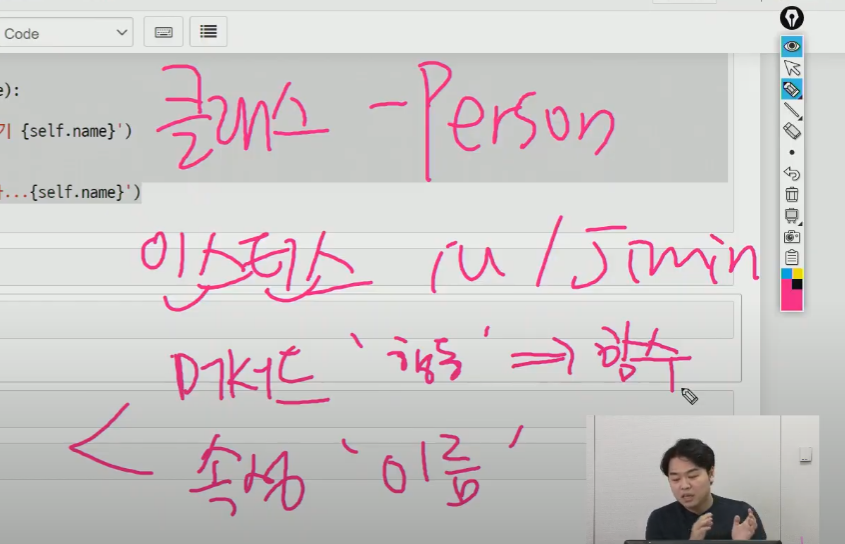 Code
e):
기 {self.name}')
...{self.name}')
클래스 - Person
인스턴스 iu / Jimin
메서드 '행동' => 함수
< 속성 '이름'